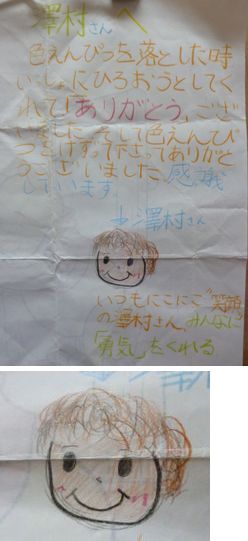 澤村さんへ
色えんぴつを落とした時
いっしょにひろおうとしてく
れて「ありがとう」ござ
いました。そして色えんぴ
つをけずって下さってありがと
うございました。感謝
しています。
澤村さん
いつもにこにこ笑顔
の澤村さん。みんなに
「勇気」をくれる